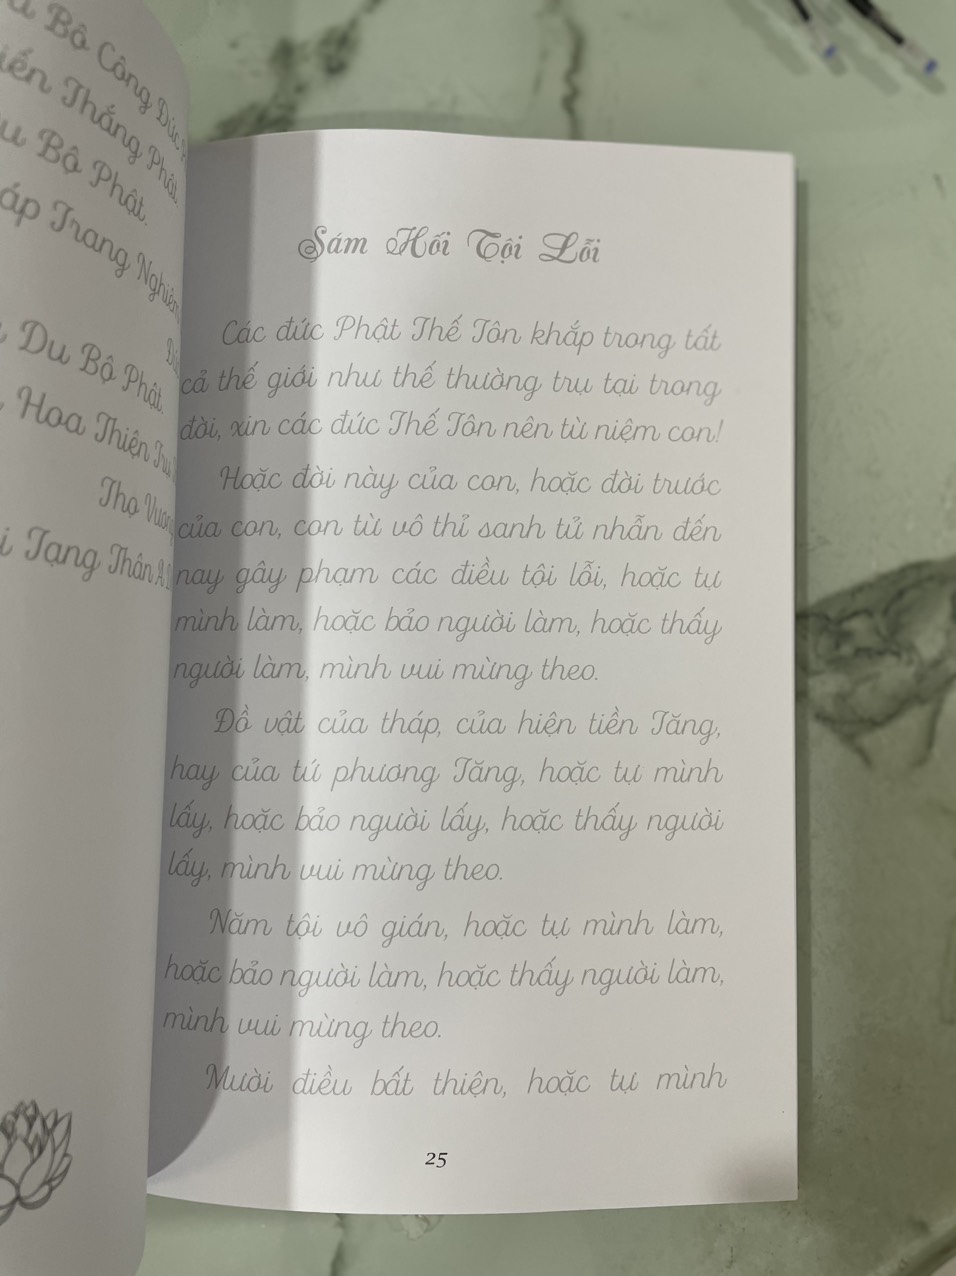 Bộ Công Đức
Thắng Phật.
Bộ Phật.
Trang Nghiêm
Du Bộ Phật.
Hoa Thiện Trụ
Thọ Vương
Tạng Thân A
Sám Hối Tội Lỗi
Các đức Phật Thế Tôn khắp trong tất
cả thế giới như thế thường trụ tại trong
đời, xin các đức Thế Tôn nên từ niệm con!
Hoặc đời này của con, hoặc đời trước
của con, con từ vô thỉ sanh tử nhẫn đến
nay gây phạm các điều tội lỗi, hoặc tự
mình làm, hoặc bảo người làm, hoặc thấy
người làm, mình vui mừng theo.
Đồ vật của tháp, của hiện tiền Tăng,
hay của tứ phương Tăng, hoặc tự mình
lấy, hoặc bảo người lấy, hoặc thấy người
lấy, mình vui mừng theo.
Năm tội vô gián, hoặc tự mình làm,
hoặc bảo người làm, hoặc thấy người làm,
mình vui mừng theo.
Mười điều bất thiện, hoặc tự mình
25